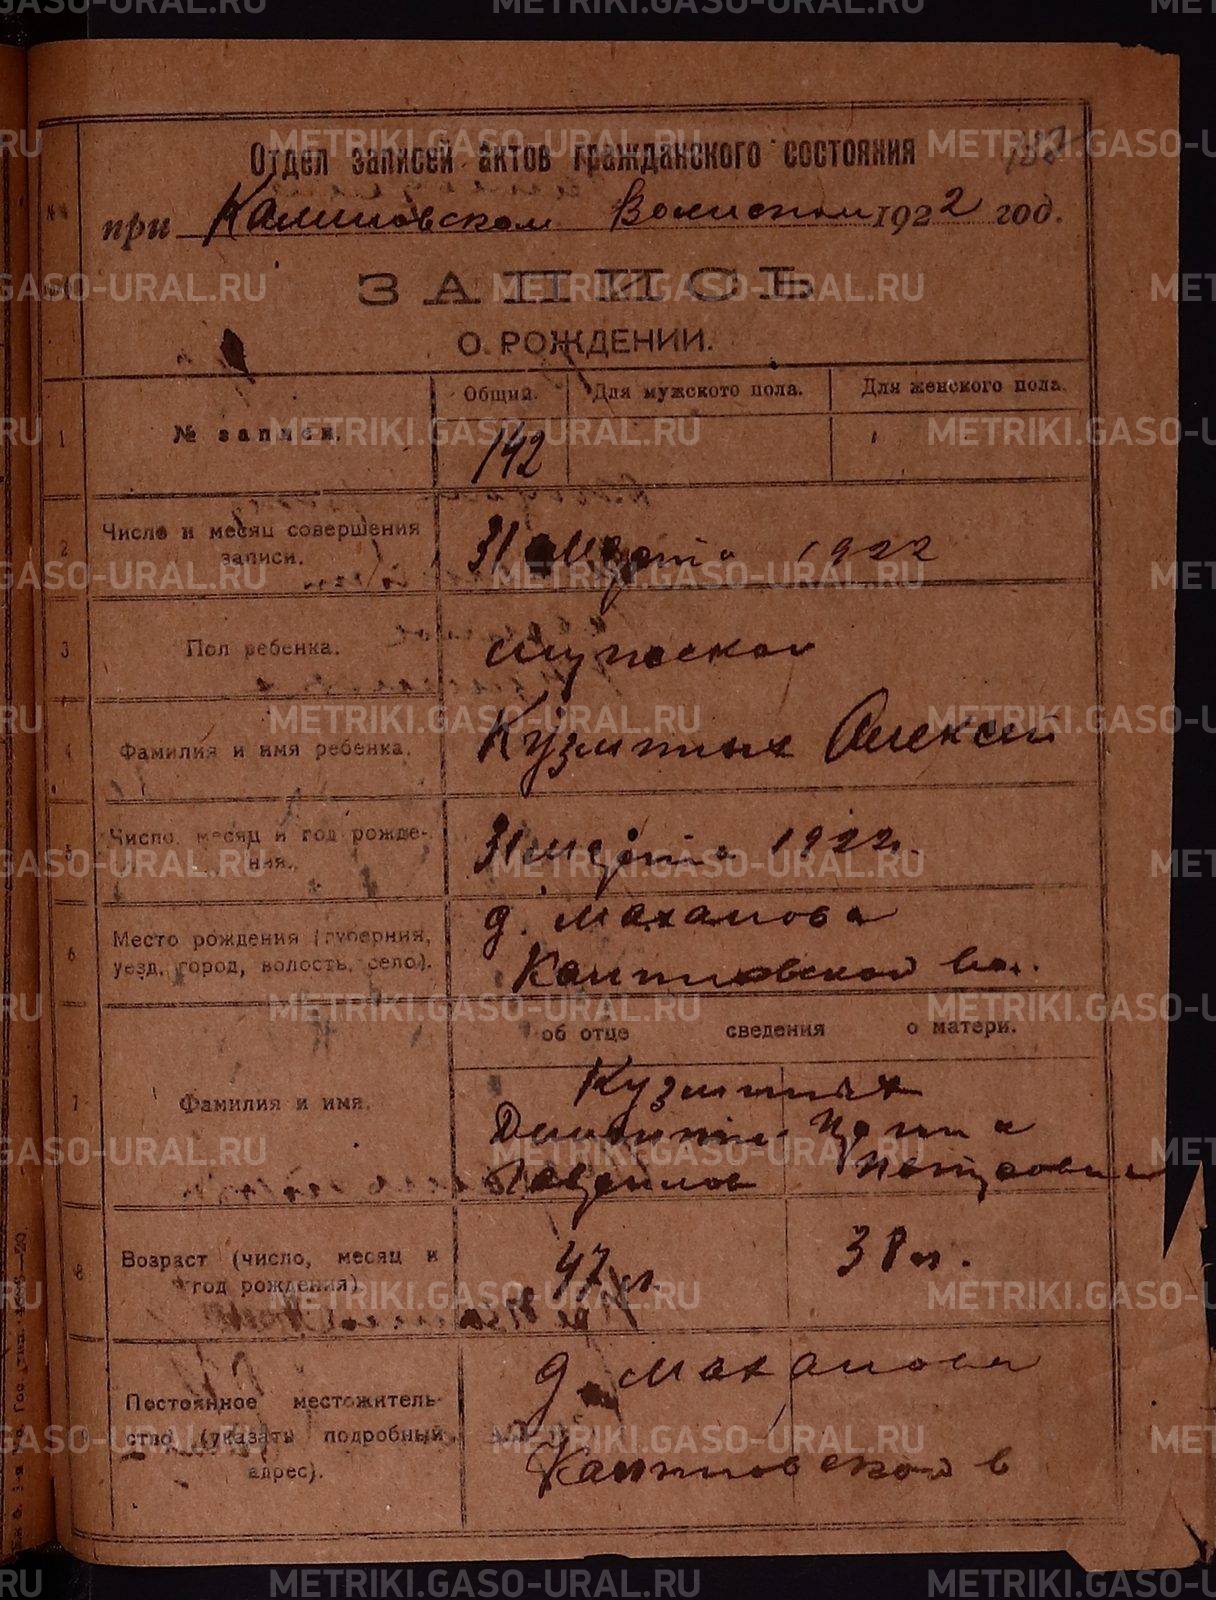 Отдел записей актов гражданского состояния
при Калиновском Волиском 1922 год.
ЗАПИСЬ
О РОЖДЕНИИ.
Общий. Для мужского пола. Для женского пола.
1 № записи. 142
2 Число и месяц совершения
записи. 31 марта 1922
3 Пол ребенка. мужской
4 Фамилия и имя ребенка. Кузминых Алексей
5 Число, месяц и год рожде-
ния. 31 марта 1922 г.
6 Место рождения (губерния,
уезд, город, волость, село).
д. Маханова
Калиновской вол.
об отце сведения о матери.
7 Фамилия и имя.
Кузминых
Гаврилов Петровна
8 Возраст (число, месяц и
год рождения)
47 л. 38 л.
9 Постоянное местожитель-
ство (указать подробный
адрес).
д. Маханова
Калиновской в
METRIKI.GASO-URAL.RU